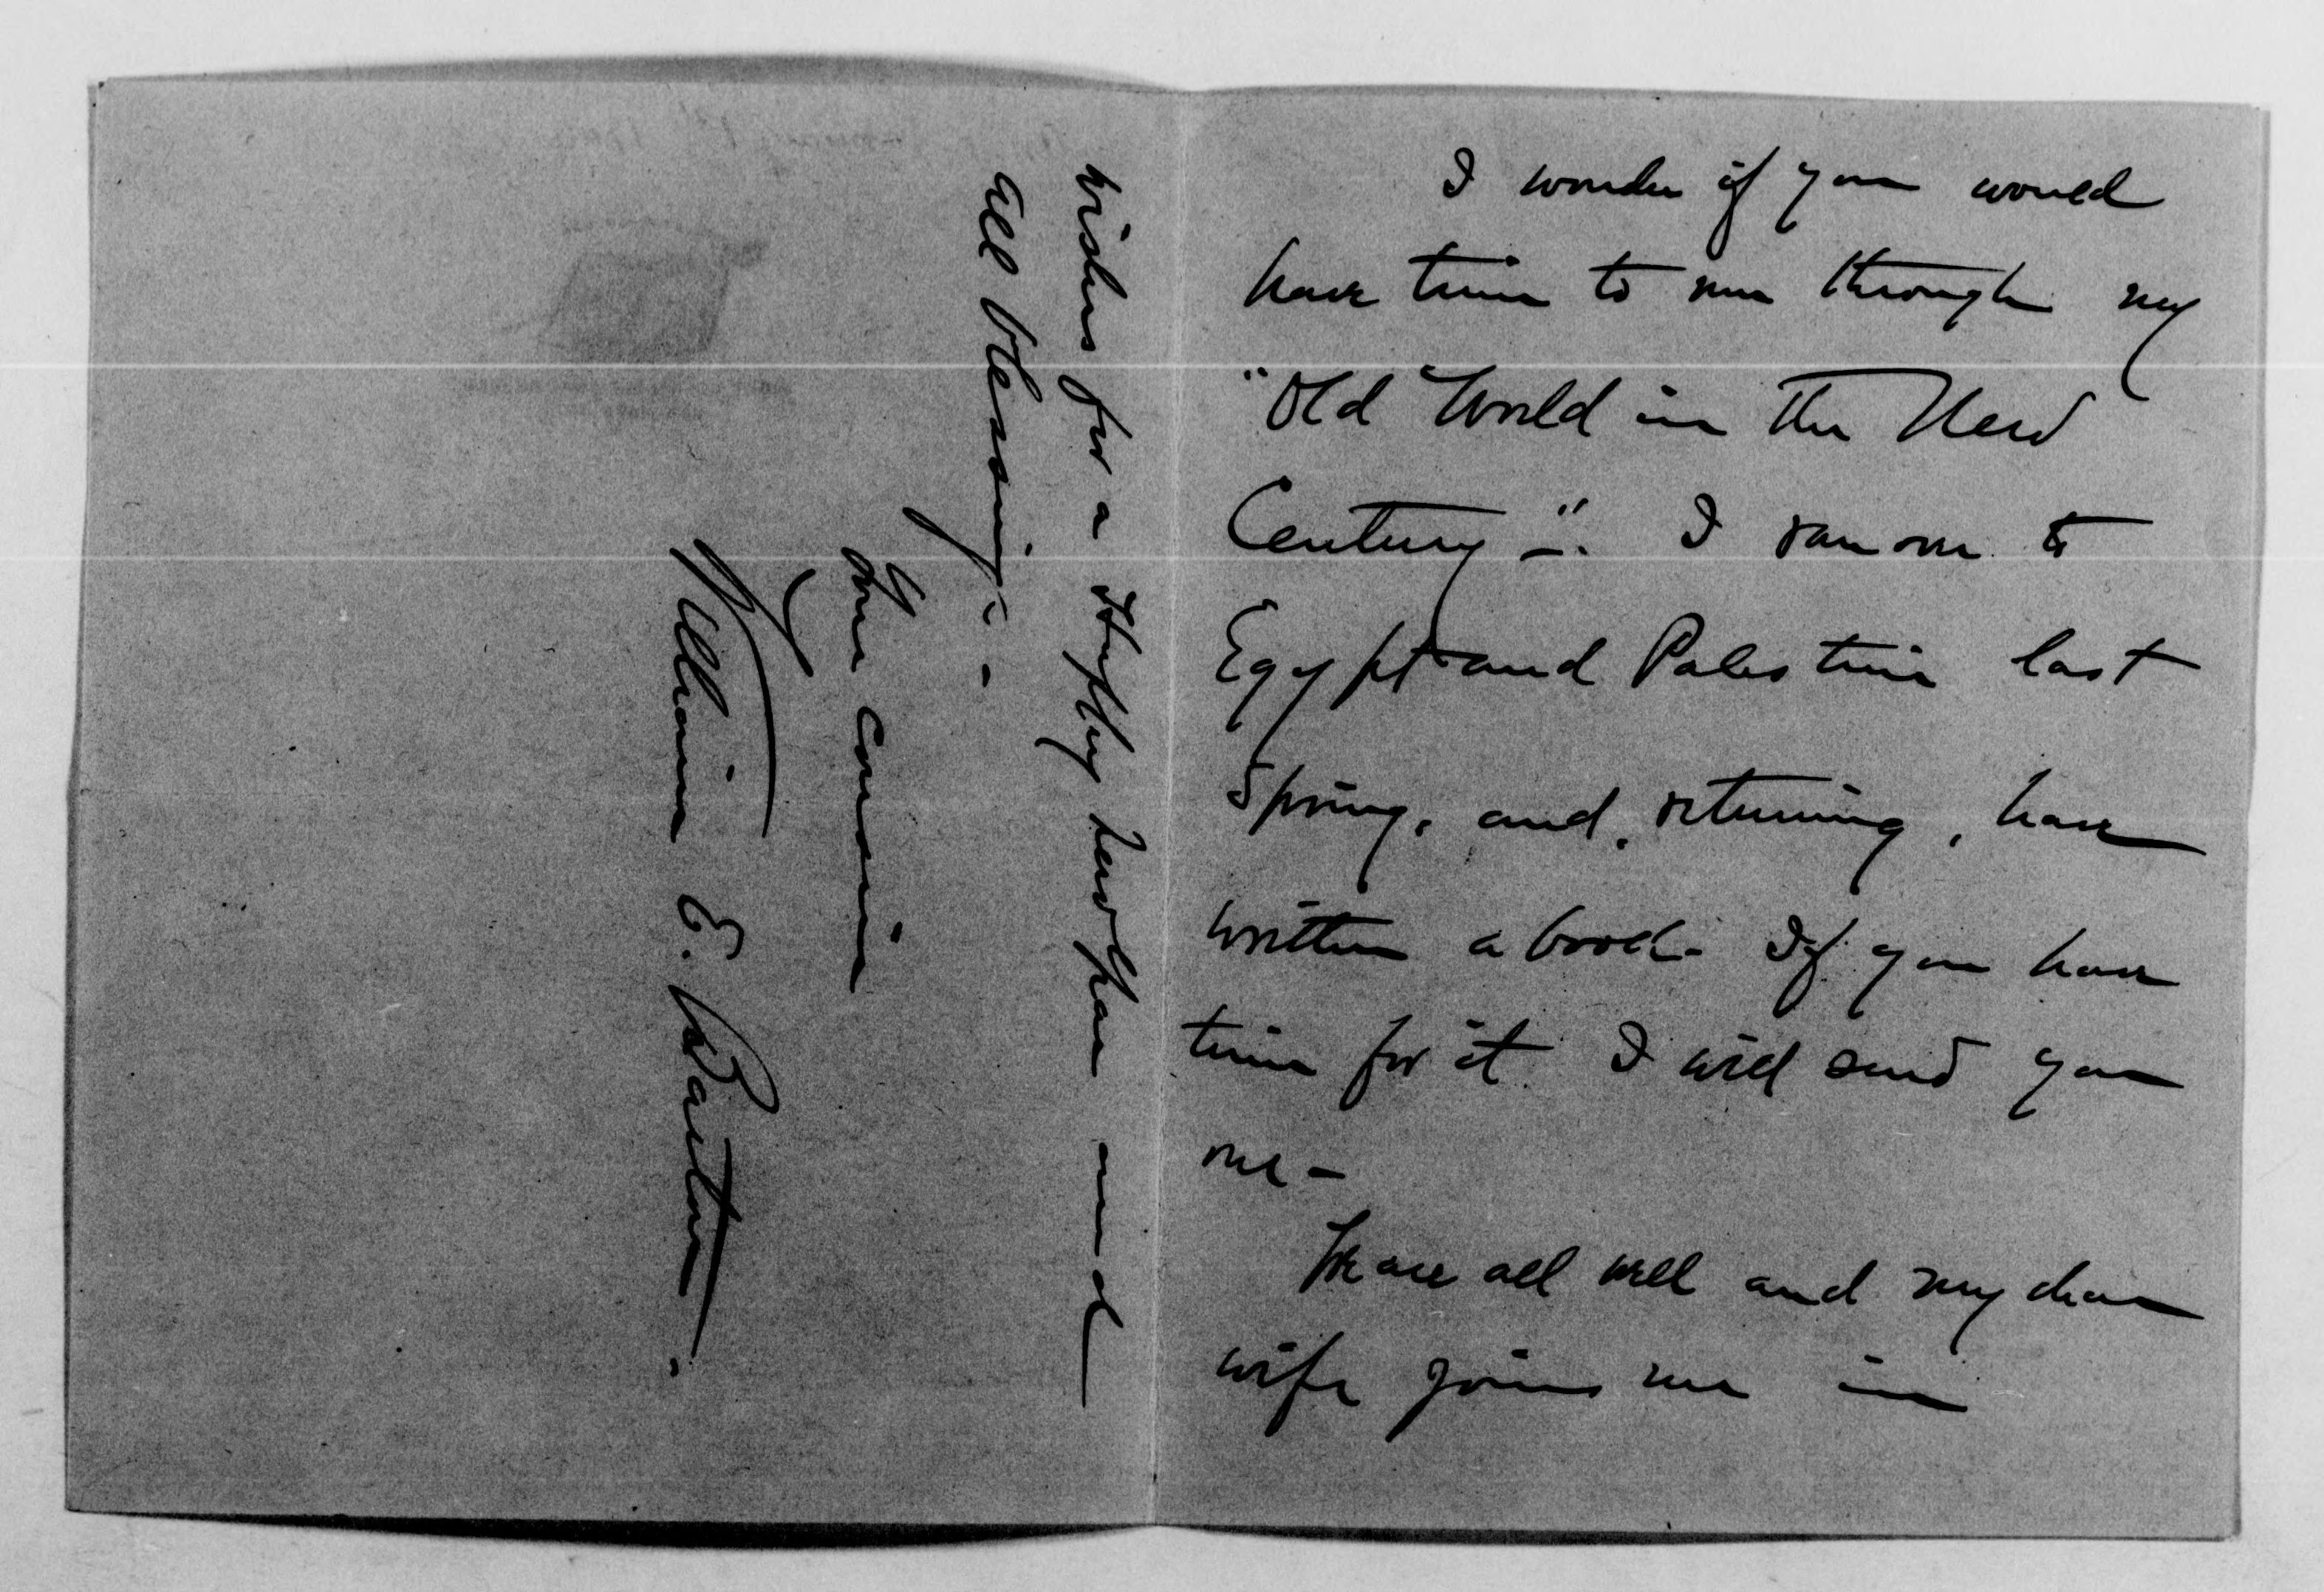 I wonder if you would
have time to run through my
"Old World in the New
Century". I ran over to
Egypt and Palestine last
Spring, and, returning, have
written a book. If you have
time for it I will send you
one -
We are all well and my dear
wife joins me in
wishes for a Happy New Year and
all blessing. -
Your cousin
William E. Barton.